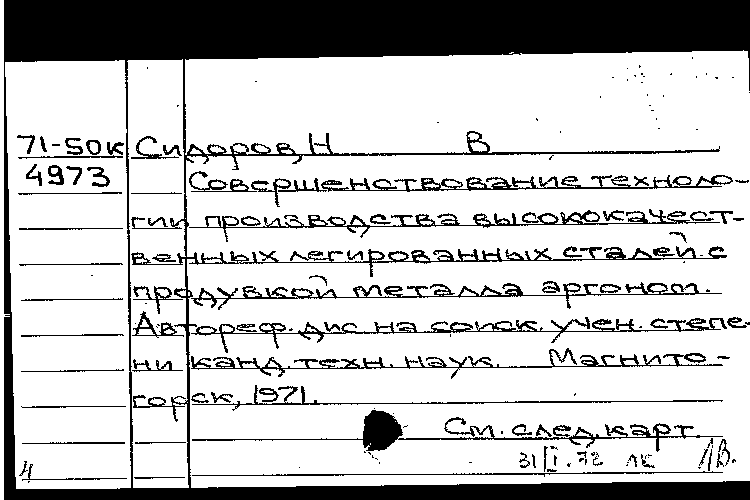 71-50к Сидоров, Н В
4973 Совершенствование техноло-
гии производства высококачест-
венных легированных сталей с
продувкой металла аргоном.
Автореф. дис на соиск. учен. степе-
ни канд. техн. наук. Магнито-
горск, 1971.
См. след. карт.
31/I.72 ЛК ЛВ.
4